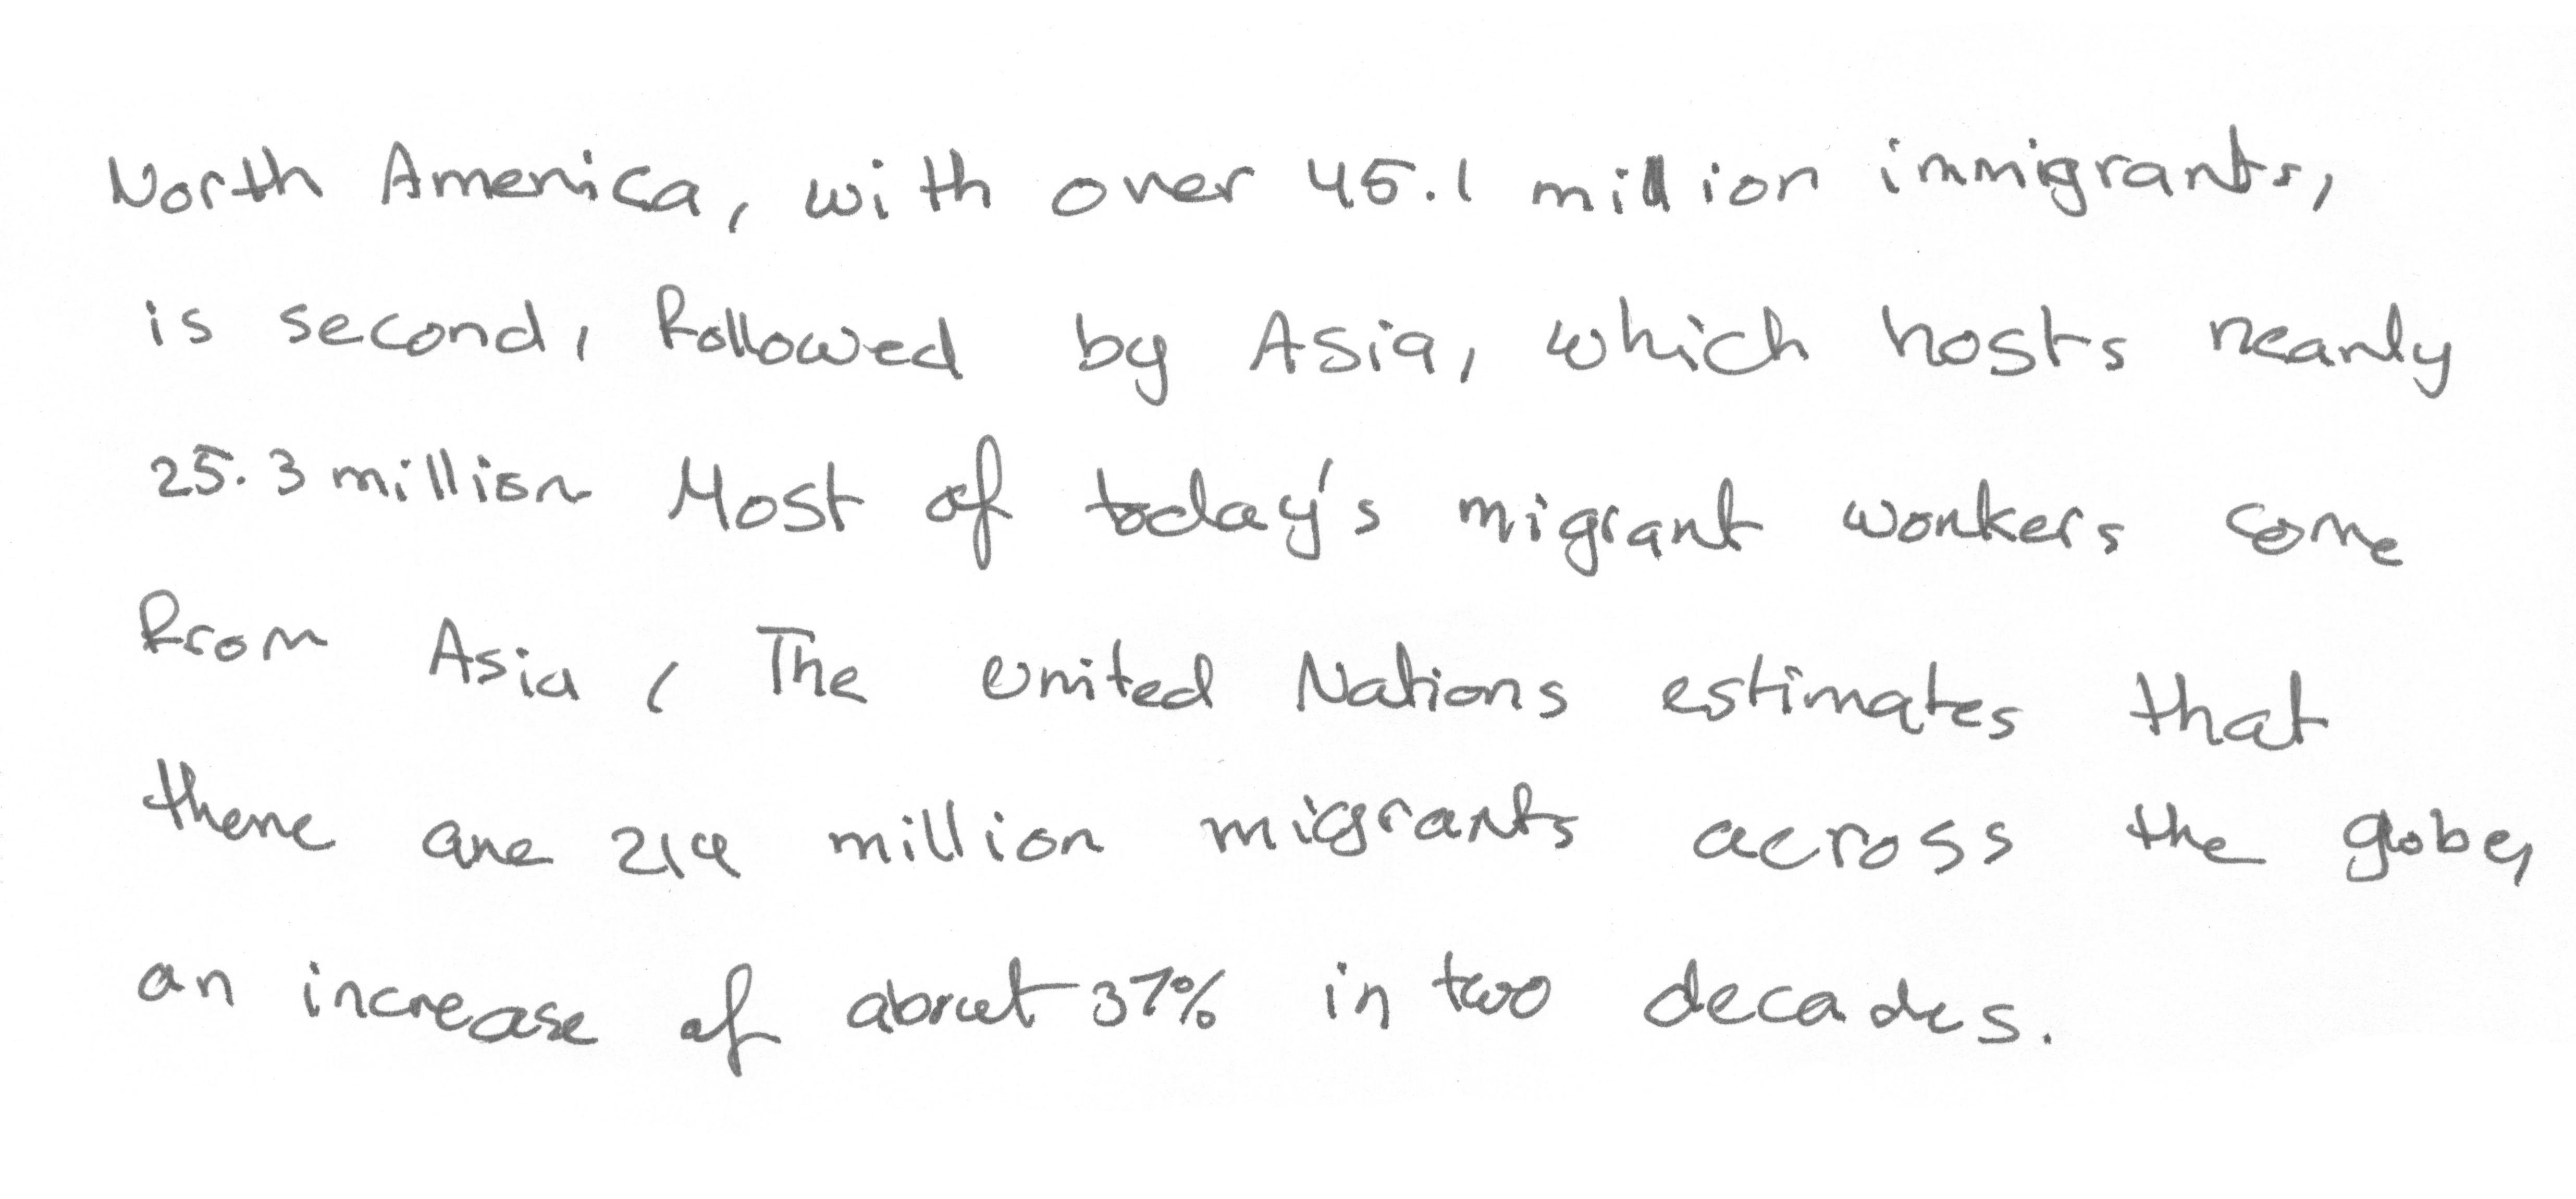 North America, with over 45.1 million immigrants,
is second, followed by Asia, which hosts nearly
25.3 million Most of today's migrant workers come
from Asia, The united Nations estimates that
there are 214 million migrants across the globe,
an increase of about 37% in two decades.